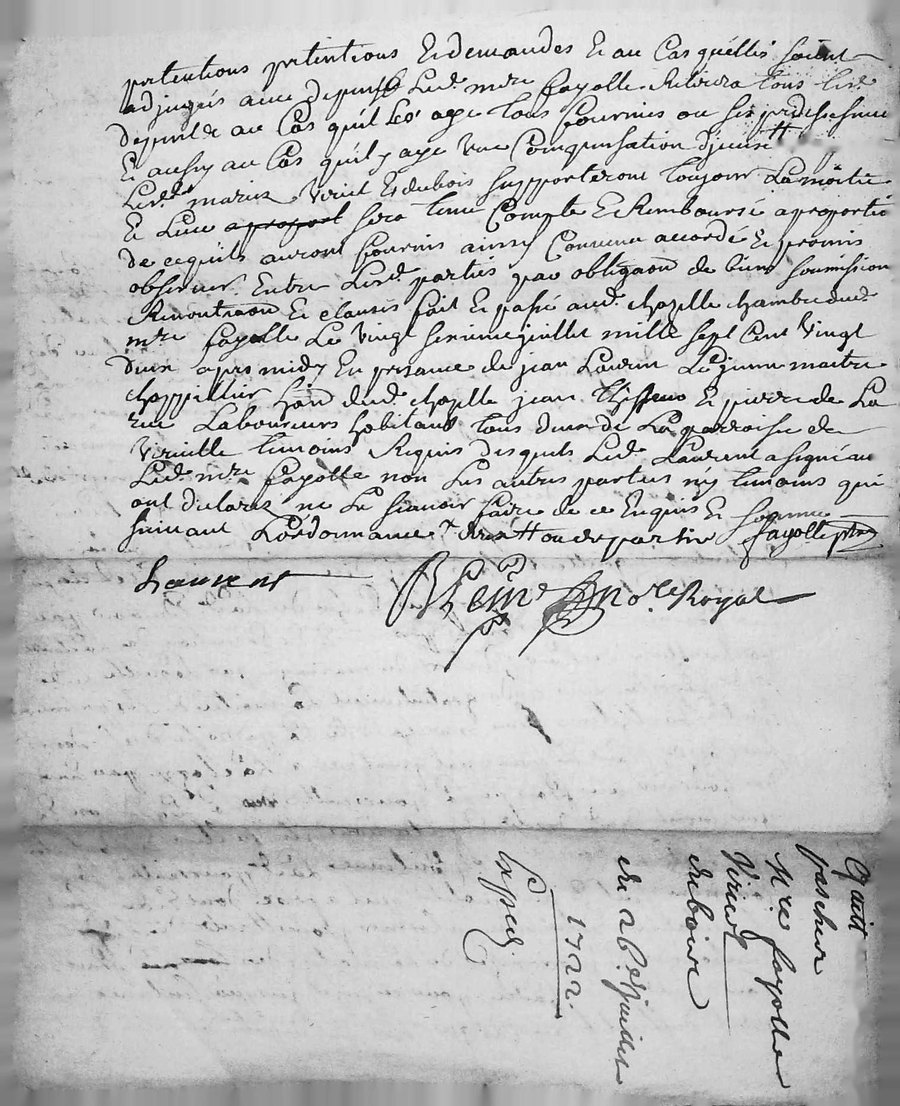 pretentions pretentions Et demandes Et au Cas quelles soient
adjugés avec depens Led. mre fayolle Retirera tous les.
depens Et au Cas quil Les aye tous fournis ou ses predecesseurs
Et aussy au Cas quil y aye Une Compensation
Lesd. maries Viriel Et dubois supporteront Toujour La moitie
Et Leur a proport sera tenu Compte Et Remboursé a proportio
de ce quils auront fournis ainsy Convenu accordé Et promis
observer Entre Lesd. parties par obligaon de biens soumission
Renontiaon Et clauses fait Et passé aud. chapelle chambre dud.
mre fayolle Le Vingt sixieme juillet mille sept Cent Vingt
deux apres midy En presance de jean Laurent Le jeune maitre
chappellier habd. dud. chapelle jean Et pierre de La
rue Laboureurs habitans tous deux de La parroisse de
Virville temoins Requis desquels Led. Laurent a signé au
Led. mre fayolle non Les autres parties ny temoins qui
ont declarés ne Le scavoir faire de ce Enquis Et sommes
suivant Lordonnance ou de partie fayolle ptre
Laurent
no.re Royal
Quit
pascheur
Mre fayolle
Viriel
dubois
du 26e juillet
1722.
Expedi